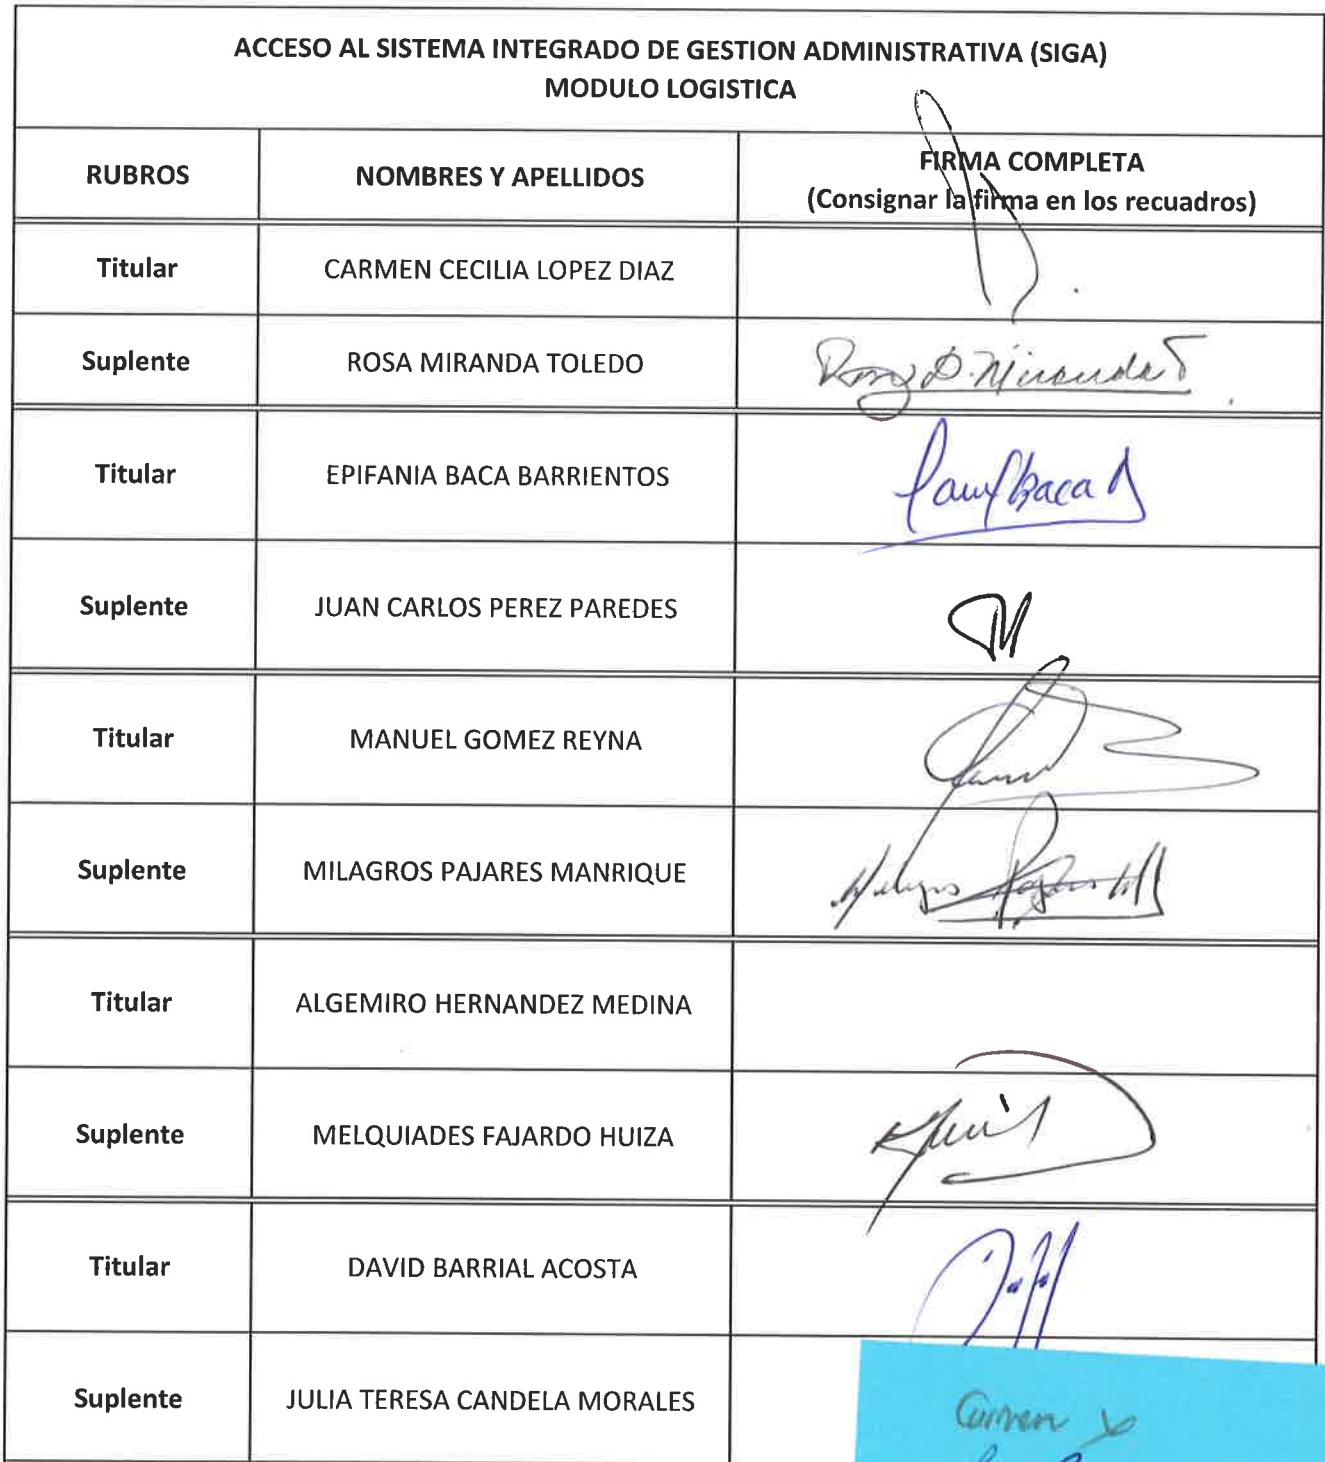 ACCESO AL SISTEMA INTEGRADO DE GESTION ADMINISTRATIVA (SIGA)
MODULO LOGISTICA
RUBROS NOMBRES Y APELLIDOS FIRMA COMPLETA
(Consignar la firma en los recuadros)
Titular CARMEN CECILIA LOPEZ DIAZ
Suplente ROSA MIRANDA TOLEDO Rosa D. Miranda T
Titular EPIFANIA BACA BARRIENTOS Baca
Suplente JUAN CARLOS PEREZ PAREDES
Titular MANUEL GOMEZ REYNA
Suplente MILAGROS PAJARES MANRIQUE
Titular ALGEMIRO HERNANDEZ MEDINA
Suplente MELQUIADES FAJARDO HUIZA
Titular DAVID BARRIAL ACOSTA
Suplente JULIA TERESA CANDELA MORALES Carmen